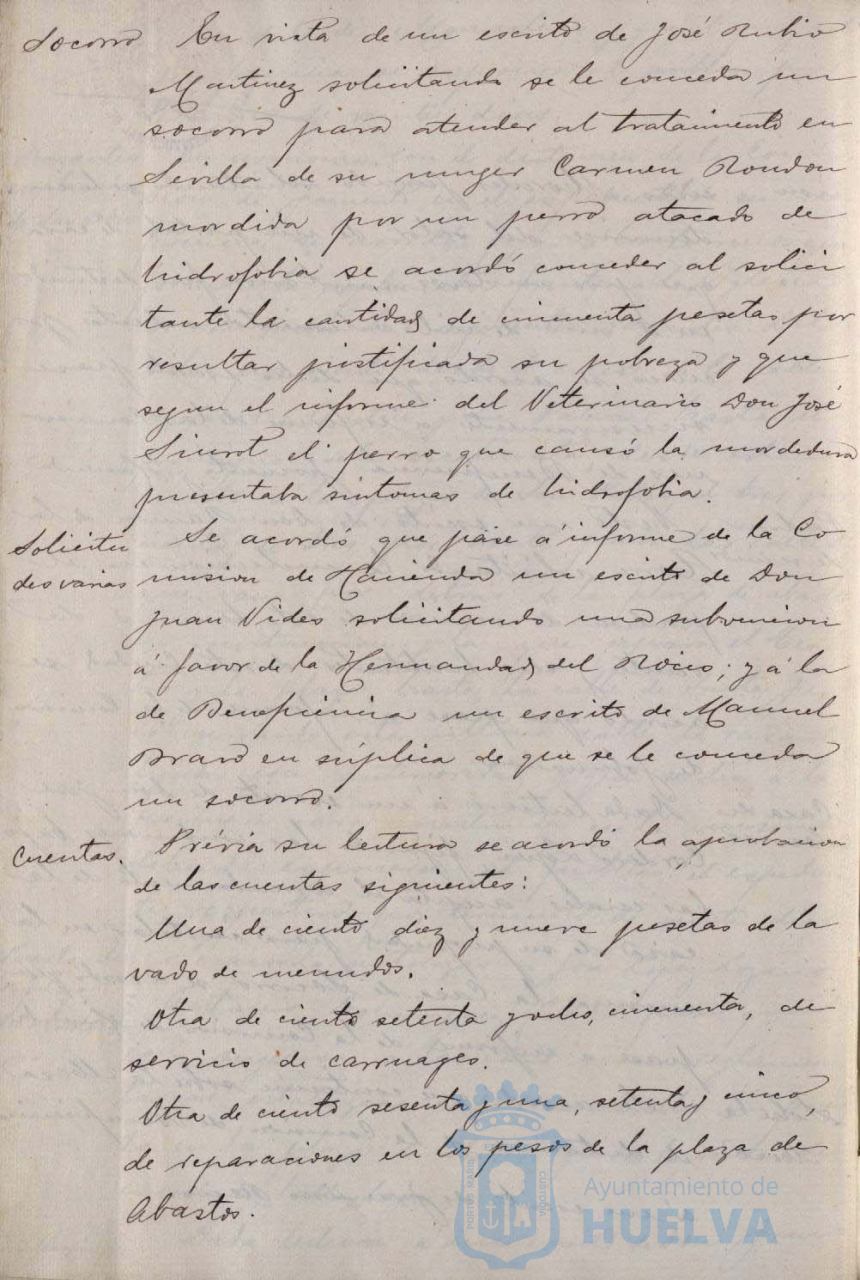 Socorro En vista de un escrito de José Rubio
Martinez solicitando se le conceda un
socorro para atender al tratamiento en
Sevilla de su muger Carmen Rondon
mordida por un perro atacado de
hidrofobia se acordó conceder al solici
tante la cantidad de cincuenta pesetas por
resultar justificada su pobreza y que
segun el informe del Veterinario Don José
Siurot el perro que causó la mordedura
presentaba sintomas de hidrofobia.
Solicitu Se acordó que pase á informe de la Co
des varias mision de Hacienda un escrito de Don
Juan Vides solicitando una subvencion
á favor de la Hermandad del Rocio; y á la
de Beneficencia un escrito de Manuel
Bravo en súplica de que se le conceda
un socorro.
Cuentas. Prévia su lectura se acordó la aprobacion
de las cuentas siguientes:
Una de ciento diez y nueve pesetas de la
vado de menudos.
Otra de ciento setenta y ocho, cincuenta, de
servicio de carruages.
Otra de ciento sesenta y una, setenta y cinco,
de reparaciones en los pesos de la plaza de
Abastos.
PORTUS MARIS
CUSTODIA
Ayuntamiento de
HUELVA